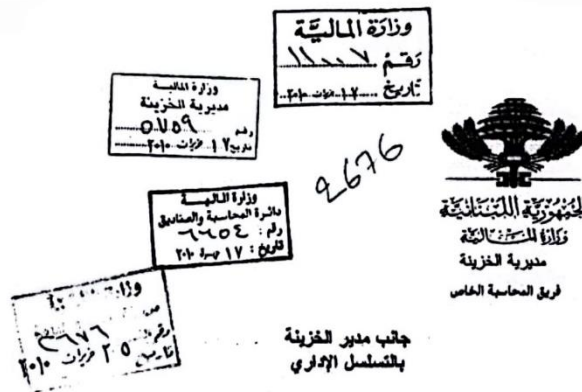 وزارة المالية
رقم ١١٠٠٧
تاريخ ١٧ حزيران ٢٠١٠
وزارة المالية
مديرية الخزينة
رقم ٥٧٥٩
تاريخ ١٧ حزيران ٢٠١٠
2676
وزارة المالية
دائرة المحاسبة والصناديق
رقم: ٦٦٥٤
تاريخ: ١٧ ٢٠١٠
رقم ٢٦٧٦
تاريخ ٢٥ حزيران ٢٠١٠
الجمهورية اللبنانية
وزارة المالية
مديرية الخزينة
فريق المحاسبة الخاص
جانب مدير الخزينة
بالتسلسل الإداري